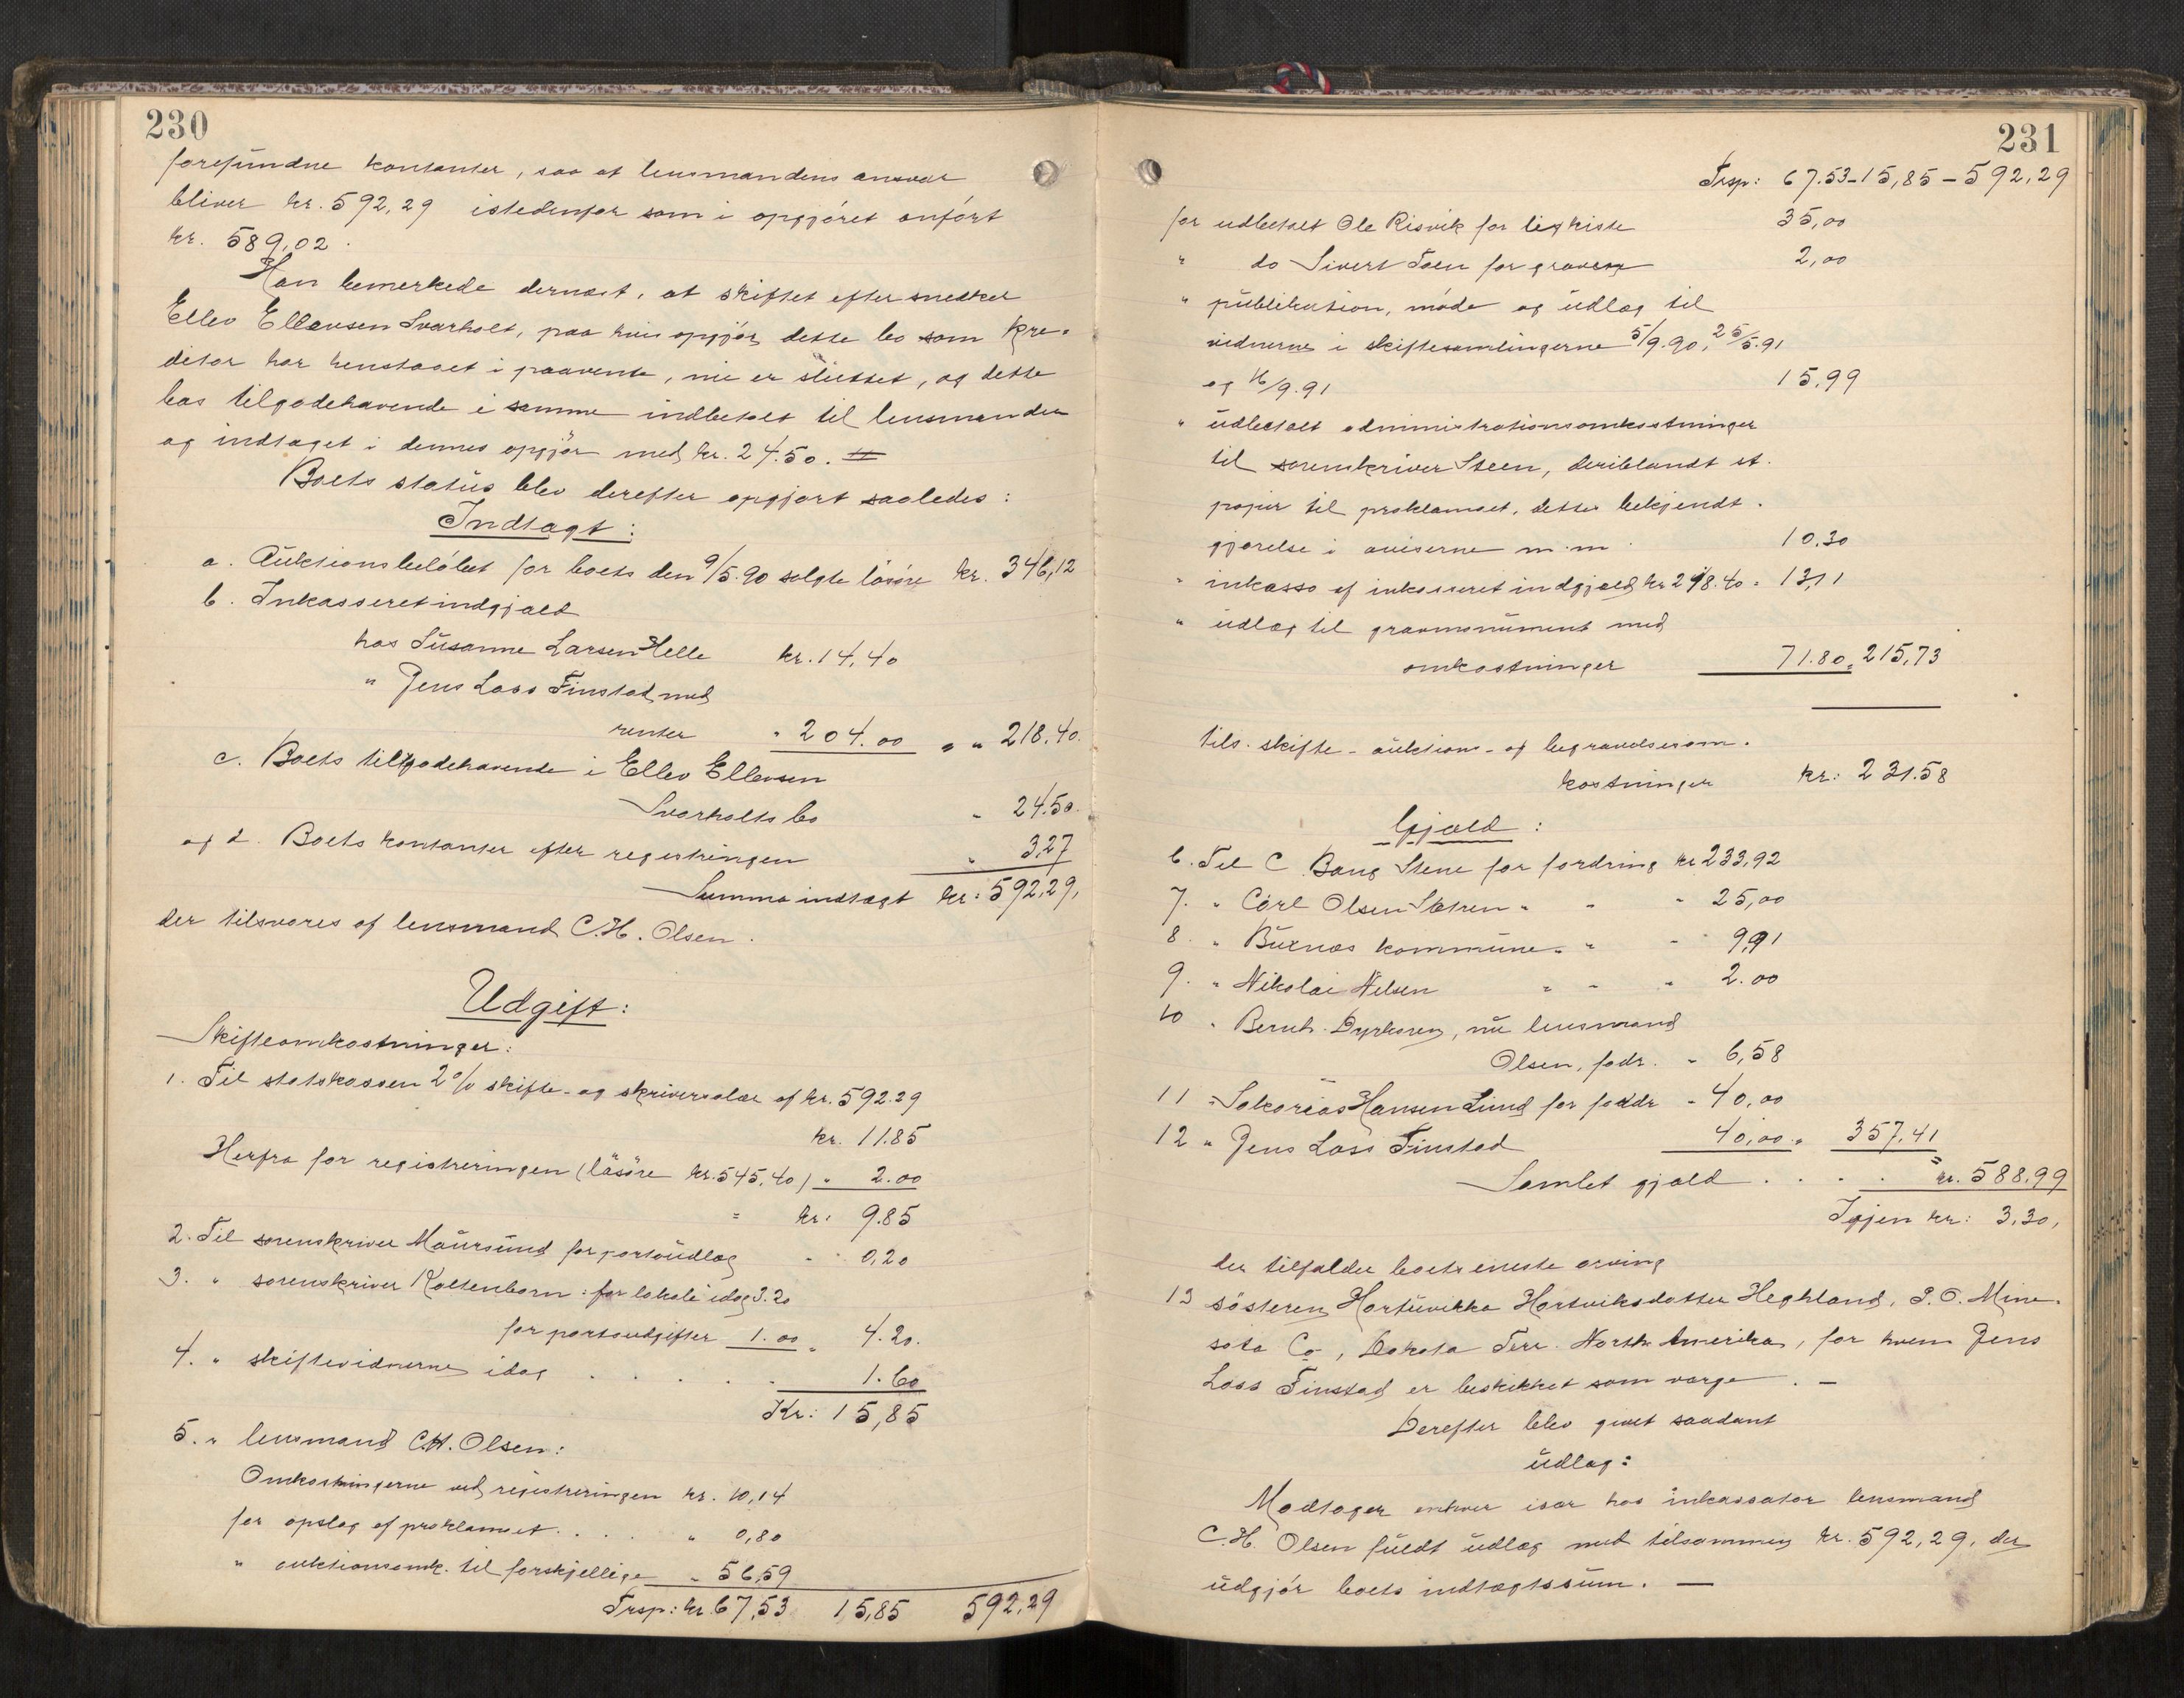 230
forefundne kontanter, saa at lensmandens ansvar
bliver kr. 592,29 istedenfor som i opgjøret anført
kr. 589,02.
Han bemerkede dernæst, at skiftet efter snedker
Ellev Ellevsen Svarholt, paa hvis opgjør dette bo som kre-
ditor har henstaaet i paavente, nu er sluttet, og dette
bos tilgodehavende i samme indbetalt til lensmanden
og indtaget i dennes opgjør med kr. 24.50.
Boets status blev derefter opgjort saaledes:
Indtægt:
a. Auktionsbeløbet for boets den 9/5.90 solgte løsøre kr. 346,12
b. Inkasseret indgjæld
hos Susanne Larsen Helle kr. 14,40
" Jens Loss Finstad med
renter " 204.00 = " 218,40.
c. Boets tilgodehavende i Ellev Ellevsen
Svarholts bo " 24.50.
og d. Boets kontanter efter registreringen " 3,27
Summa indtægt kr: 592,29,
der tilsvares af lensmand C.H. Olsen.
Udgift:
Skifteomkostninger:
1. Til statskassen 2 % skifte- og skriversalær af kr. 592.29
kr. 11.85
Herfra for registreringen (løsøre kr. 545,40) " 2.00
= kr: 9.85
2. Til sorenskriver Maursund for portoudlæg " 0,20
3. " sorenskriver Koltenborn: for lokale idag 3.20
for portoudgifter 1.00 " 4.20.
4. " skiftevidnerne idag . . . . . 1.60
Kr: 15,85
5. " lensmand C.H. Olsen:
Omkostningerne ved registreringen kr. 10,14
for opslag af proklamaet . . . . " 0,80
" auktionsomk. til forskjellige " 56,59
Trsp: kr. 67,53 15,85 592,29
231
Trsp: 67.53 - 15,85 - 592,29
for udbetalt Ole Risvik for ligkiste 35,00
" do Sivert Toen for graven 2,00
" publikation, møde og udlæg til
vidnerne i skiftesamlingerne 5/9.90, 25/5.91
og 16/9.91 15,99
" udbetalt administrationsomkostninger
til sorenskriver Steen, deriblandt st.
papir til proklamaet, dettes bekjendt-
gjørelse i aviserne m.m. 10.30
" inkasso af inkasseret indgjæld kr 218.40 = 13,11
" udlæg til gravmonument med
omkostninger 71.80 = 215,73
tils. skifte- auktions- og begravelsesom-
kostninger kr: 231.58
Gjæld:
6. Til C Bang Stene for fordring kr 233,92
7. " Carl Olsen Sætren " " " 25,00
8. " Buxnæs kommune " " " 9,91
9. " Nikolai Nilsen " " " 2.00
10 " Bernh. Dyrkoren, nu lensmand
Olsen, fodr. " 6,58
11 " Sakarias Hansen Lund for foddr " 40,00
12 " Jens Loss Finstad 40,00 " 357,41
Samlet gjæld . . . . kr. 588,99
Igjen kr: 3,30,
der tilfalder boets eneste arving
13 søsteren Hartuvikka Hartviksdatter Heghland, P.O. Mine-
sota Co, Dakota Terr. North Amerika, for hvem Jens
Loss Finstad er beskikket som værge. -
Derefter blev givet saadant
udlæg:
Modtager enhver især hos inkassator lensmand
C.H. Olsen fuldt udlæg med tilsammen kr. 592,29, der
udgjør boets indtægtssum. -